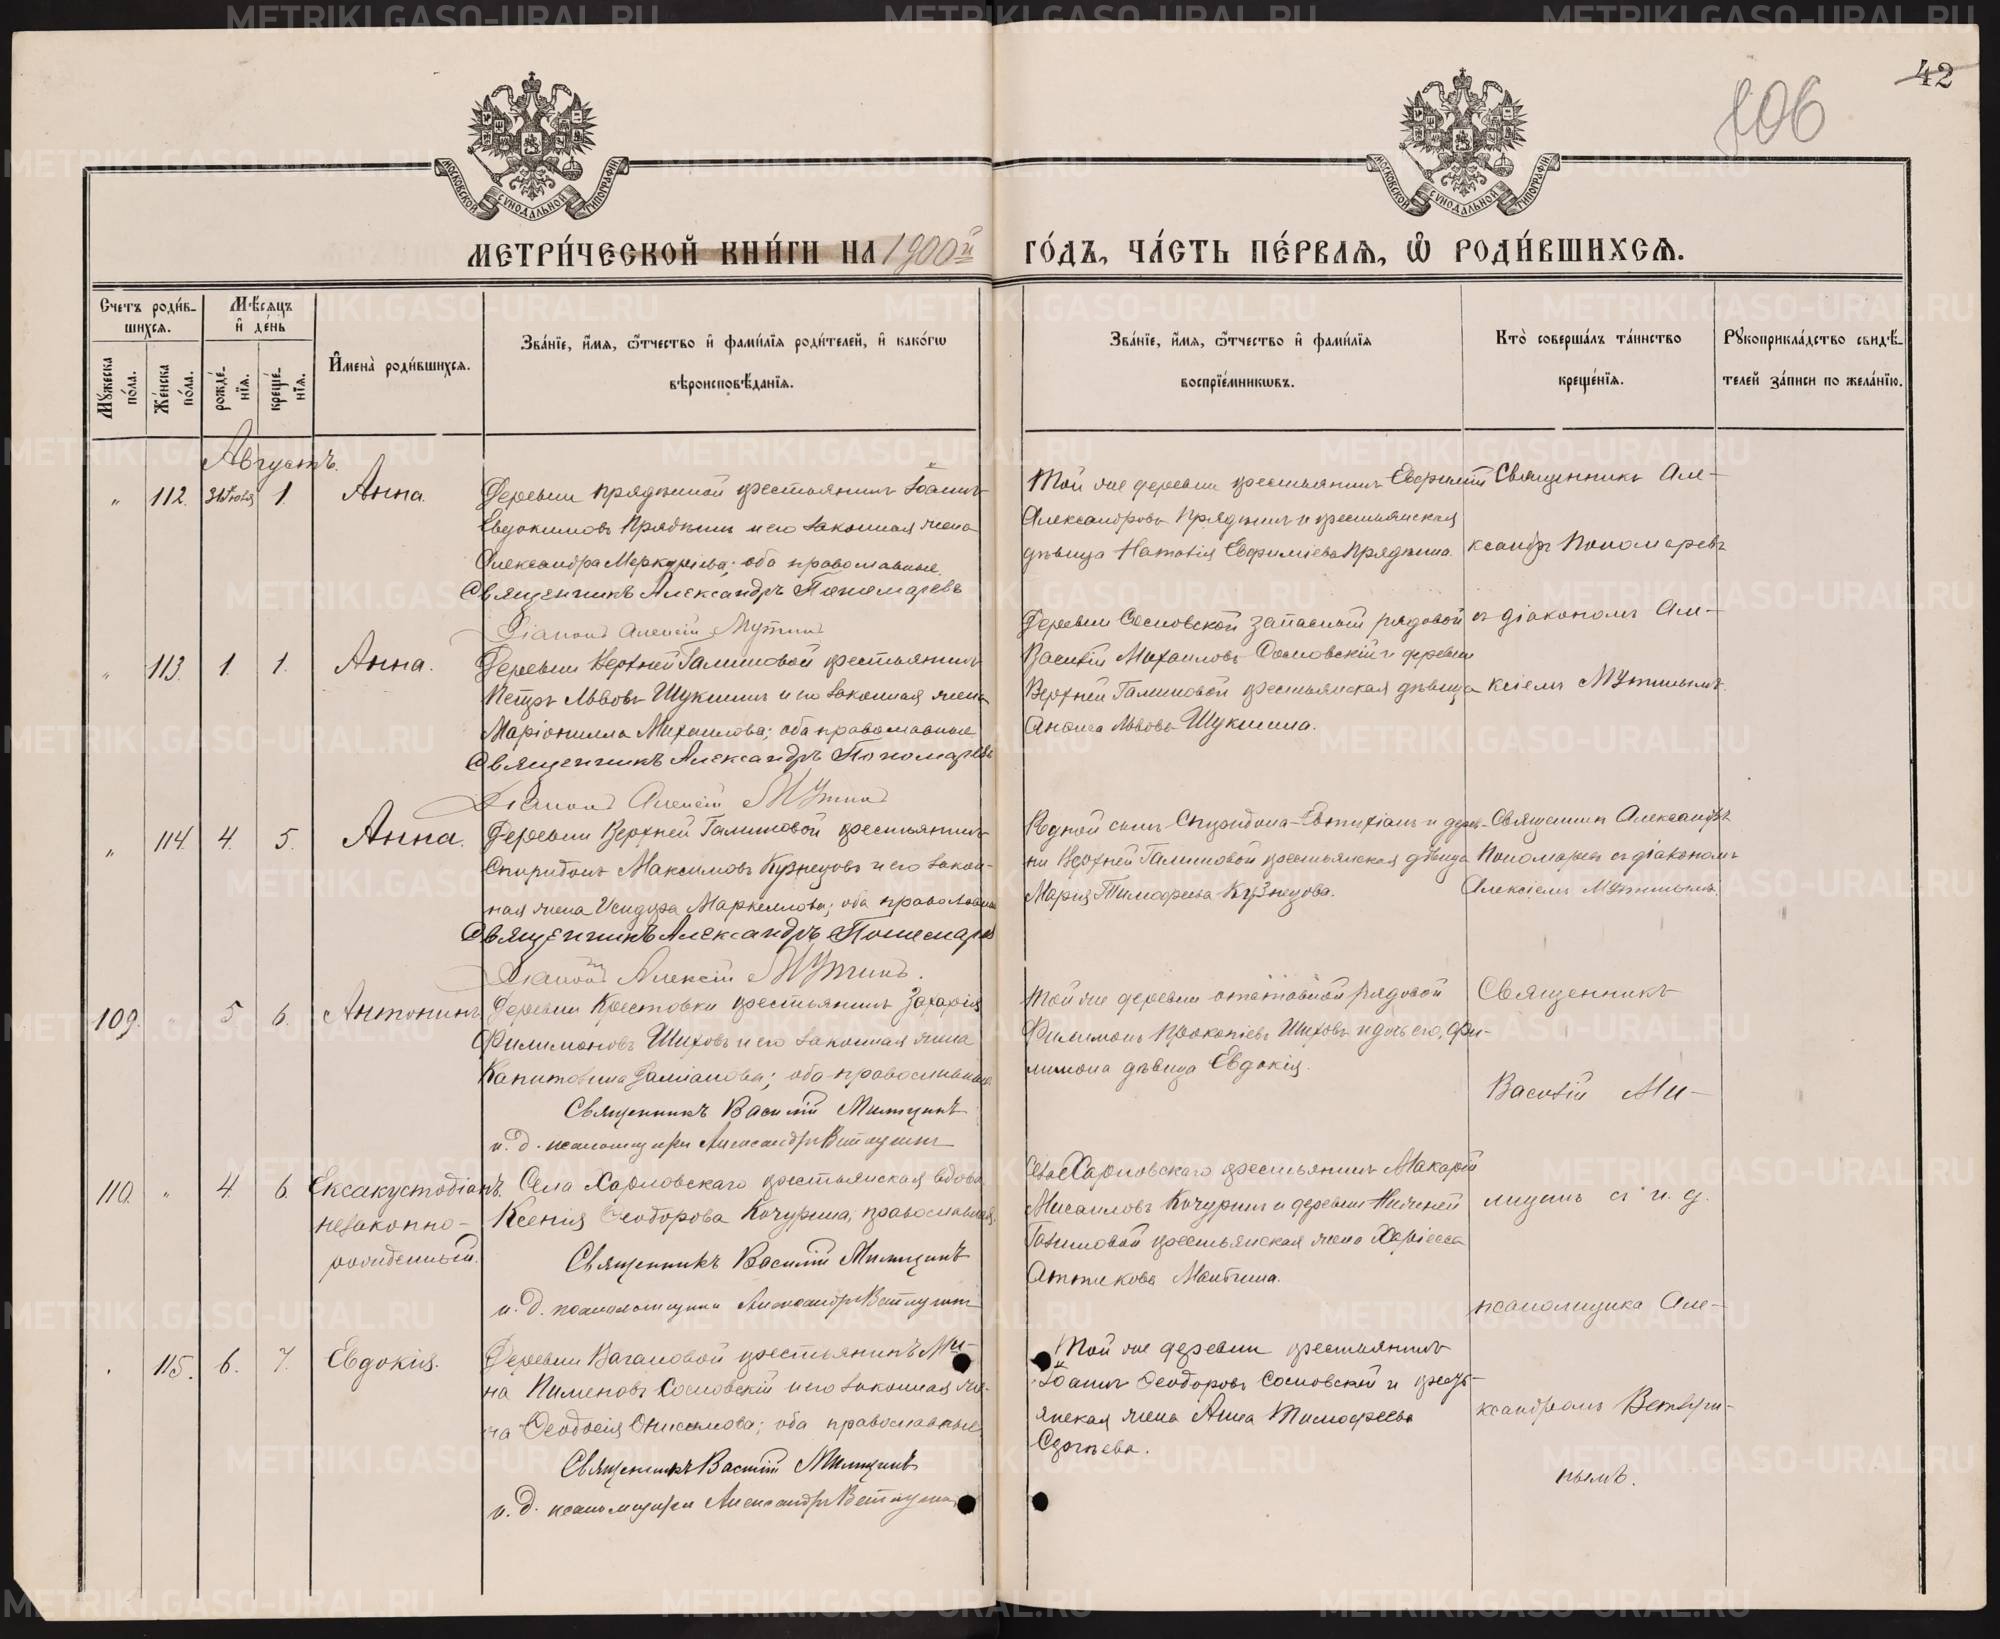 42
806
МОСКОВСКОЙ СѴНОДАЛЬНОЙ ТИПОГРАФІИ
МОСКОВСКОЙ СѴНОДАЛЬНОЙ ТИПОГРАФІИ
МЕТРИ́ЧЕСКОЙ КНИ́ГИ НА 1900й
ГО́ДЪ, ЧА́СТЬ ПЕ́РВАѦ, Ѡ҆ РОДИ́ВШИХСѦ.
Счетъ роди́в-
шихсѧ.
Мꙋжеска по́ла.
Же́нска по́ла.
Мѣ́сѧцъ
и҆ де́нь
рожде́-
нїѧ.
креще́-
нїѧ.
И҆мена̀ роди́вшихсѧ.
Зва́нїе, и҆́мѧ, ѻ҆́тчество и҆ фами́лїѧ роди́телей, и҆ како́гѡ
вѣроисповѣ́данїѧ.
Зва́нїе, и҆́мѧ, ѻ҆́тчество и҆ фами́лїѧ
воспрїе́мникѡвъ.
Кто̀ соверша́лъ та́инство
креще́нїѧ.
Рꙋкоприкла́дство свидѣ́-
телей за́писи по жела́нїю.
Августъ.
„ 112. 31 Іюля 1. Анна.
Деревни Прядѣиной крестьянинъ Іоаннъ
Евдокимовъ Прядѣинъ и его законная жена
Александра Меркуріева; оба православные.
Священникъ Александръ Пономаревъ
Діаконъ Алексій Мутинъ
Той же деревни крестьянинъ Евфимій
Александровъ Прядѣинъ и крестьянская
дѣвица Наталія Евфиміева Прядѣина.
Священникъ Але-
ксандръ Пономаревъ
съ діакономъ Але-
ксіемъ Мутинымъ.
„ 113. 1. 1. Анна.
Деревни Верхней Галишовой крестьянинъ
Петръ Львовъ Шукшинъ и его законная жена
Маріонилла Михаилова; оба православные
Священникъ Александръ Пономаревъ
Діаконъ Алексій Мутинъ
Деревни Сосновской запасный рядовой
Василій Михаиловъ Сосновскій и деревни
Верхней Галишовой крестьянская дѣвица
Анфиса Львова Шукшина.
„ 114. 4. 5. Анна.
Деревни Верхней Галишовой крестьянинъ
Спиридонъ Максимовъ Кузнецовъ и его закон-
ная жена Исидора Маркеллова; оба православны
Священникъ Александръ Пономарев
Діаконъ Алексій Мутинъ.
Родной сынъ Спиридона - Евтихіанъ и дерев-
ни Верхней Галишовой крестьянская дѣвица
Марія Тимофеева Кузнецова.
Священникъ Александръ
Пономаревъ съ діакономъ
Алексіемъ Мутинымъ.
109. 5 6. Антонинъ
Деревни Крестовки крестьянинъ Захарія
Филимоновъ Шиховъ и его законная жена
Капитолина Даміанова; оба православные
Священникъ Василій Милицинъ
и. д. псаломщика Александръ Ветлугинъ
Той же деревни отставной рядовой
Филимонъ Прокопіевъ Шиховъ и дочь его, Фи-
лимона дѣвица Евдокія.
Священникъ
Василій Ми-
лицинъ съ и. д.
псаломщика Але-
ксандромъ Ветлуги-
нымъ.
110. „ 4. 6. Ексакустодіанъ.
незаконно-
рожденный.
Села Харловскаго крестьянская вдова
Ксенія Ѳеодорова Кочурина, православная.
Священникъ Василій Милицинъ
и. д. псаломщика Александръ Ветлугинъ
Села Харловскаго крестьянинъ Макарій
Мисаиловъ Кочуринъ и деревни Нижней
Галишовой крестьянская жена
115. 6. 7. Евдокія.
Деревни Вагановой крестьянинъ Ми-
на Пименовъ Сосновскій и его законная же-
на Ѳеодосія Онисимова; оба православные.
Священникъ Василій Милицинъ
и. д. псаломщика Александръ Ветлугинъ
Той же деревни крестьянинъ
Іоаннъ Ѳеодоровъ Сосновской и кресть-
янская жена Анна Тимофеева
Сергѣева.